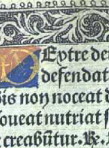 Eytre de
defendat
bis non noceat d
foueat nutriat s
t creabūtur. Re.